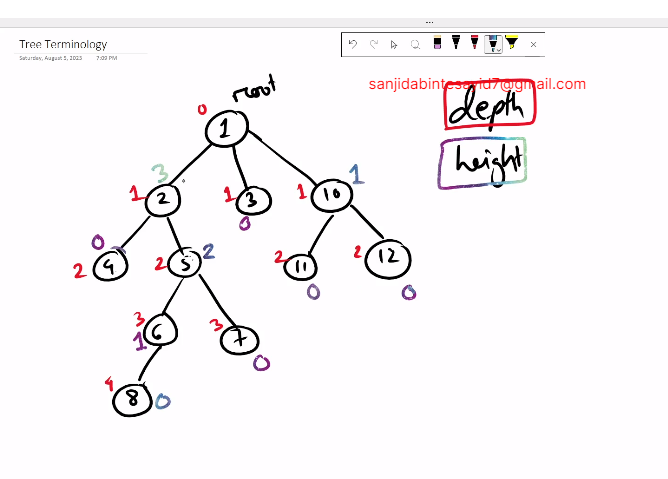 ...
Tree Terminology
Saturday, August 5, 2023 7:09 PM
sanjidabintesayid7@gmail.com
root
depth
height
0
1
3
1 2
1 3
0
1 10 1
0
2 4
2 5 2
2 11
0
2 12
0
3
1 6
3 7
0
4
8 0